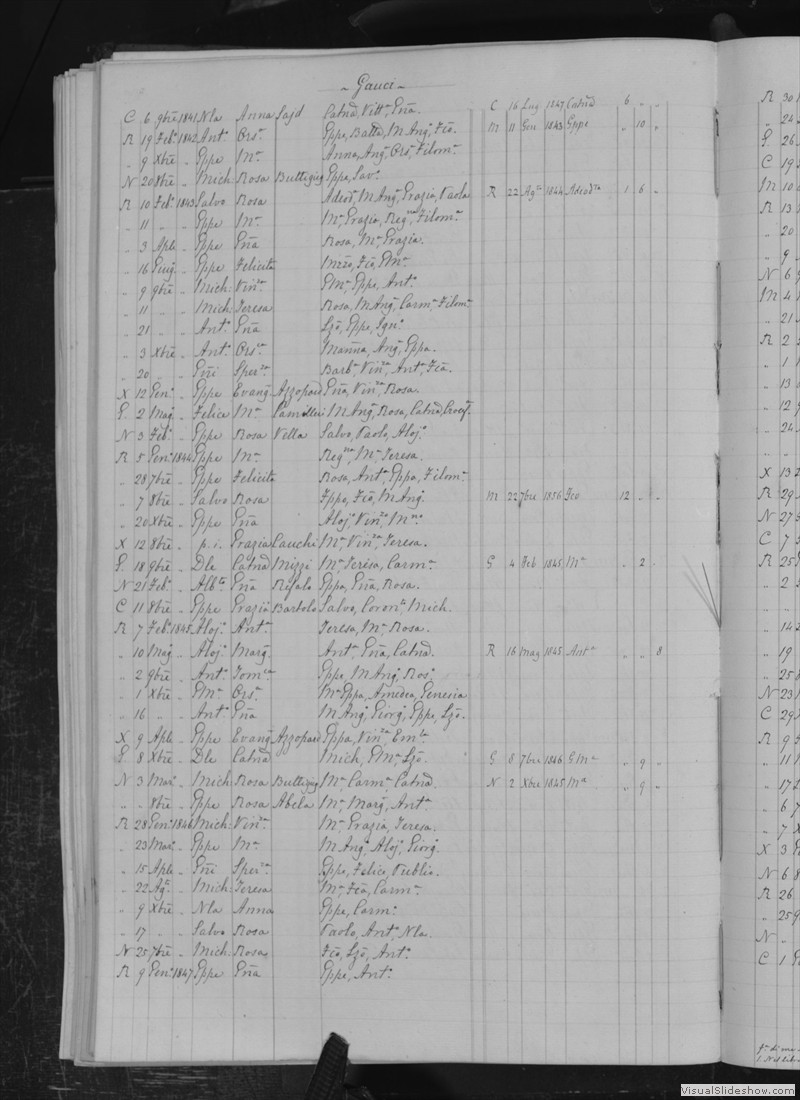 Gauci
C 6 9bre 1841 Nla Anna Sajd Catnd, Vitta, Gna. C 16 Lug 1847 Catnd 6 " "
R 19 Feb. 1842 Ant. Ors. Gppe, Batta, M Ang, Fco. M 11 Gen 1843 Gppe " 10 "
" 9 Xbre " Gppe Ma Anna, Ang, Ors, Filom.
N 20 8bre " Mich: Rosa Buttigieg Gppe, Sav.
R 10 Feb. 1843 Salvo Rosa Adeod, M Ang, Grazia, Paola R 22 Agto 1844 Adeodta 1 6 "
" 11 " " Gppe Ma Ma, Grazia, Regna, Filoma
" 3 Aple " Gppe Gna Rosa, Ma, Grazia.
" 16 Giug " Gppe Felicita Fca, GMa
" 9 9bre " Mich: Vinza GMa, Gppe, Ant.
" 11 " " Mich: Teresa Rosa, M Ang, Carm, Filom
" 21 " " Ant. Gna Lzo, Gppe, Ign.
" 3 Xbre " Ant. Orsla Marina, Ang, Gppa.
" 20 " " Gni Sperza Barb, Vinza, Ant, Fca.
X 12 Gen. " Gppe Evang Azzopard Gna, Vinza, Rosa.
G 2 Mag. " Felice Ma Camilleri M Ang, Rosa, Catnd, Crocif.
N 3 Feb. " Gppe Rosa Vella Salvo, Paolo, Aloj.
R 5 Gen. 1844 Gppe Ma Regna, Ma, Teresa.
" 28 7bre " Gppe Felicita Rosa, Ant, Gppa, Filom.
" 7 8bre " Salvo Rosa Gppe, Fco, M Ang M 22 7bre 1856 Fco 12 " "
" 20 Xbre " Gppe Gna Aloj, Vinzo, Mno
X 12 8bre " p. i. Grazia Cauchi Ma, Vinza, Teresa.
G 18 9bre " Dle Catnd Mizzi Ma, Teresa, Carm. G 4 Feb 1845 Ma " 2 "
N 21 Feb. " Albto Gna Refalo Gppa, Gna, Rosa.
C 11 8bre " Gppe Grazia Bartolo Salvo, Coronto, Mich.
R 7 Feb. 1845 Aloj. Anta Teresa, Ma, Rosa.
" 10 Mag " Aloj. Marg. Anta, Gna, Catnd. R 16 mag 1845 Anta " " 8
" 2 9bre " Ant. Tomca Gppe, M Ang, Ros.
" 1 Xbre " GMa Orsa Ma Gppa, Amedea, Genesia
" 16 " " Ant. Gna M Ang, Giorg, Gppe, Lzo.
X 9 Aple " Gppe Evang Azzopard Gppa, Vinza, Emla
G 8 Xbre " Dle Catnd Mich, GMa, Lzo. G 8 7bre 1846 GMa " 9 "
N 3 Mar. " Mich: Rosa Buttigieg Ma, Carm, Catnd. N 2 Xbre 1845 Ma " 9 "
" " 8bre " Gppe Rosa Abela Ma, Marg, Anta
R 28 Gen. 1846 Mich: Vinza Ma, Grazia, Teresa.
" 23 Mar. " Gppe Ma M Ang, Aloj, Giorg.
" 15 Aple " Gni Sperza Gppe, Felice, Publio.
" 22 Ag. " Mich: Teresa Ma, Fca, Carm.
" 9 Xbre " Nla Anna Gppe, Carm.
" 17 " " Salvo Rosa Paolo, Ant, Nla.
N 25 7bre " Mich: Rosa Fco, Lzo, Ant.
R 9 Gen. 1847 Gppe Gna Gppe, Ant.
R 30
" 24
G 26
C 19
M 10
R 13
" 20
" 9
N 6
M 4
" 21
R 2
" 1
" 13
" 12
" 24
" "
X 13
R 29
N 27
C 7
R 25
" 2
" 14
" 19
" 25
N 23
C 29
R 9
" 11
" 17
" 6
" 7
X 3
N 6
R 26
" 25
N "
C 1
VisualSlideshow.com